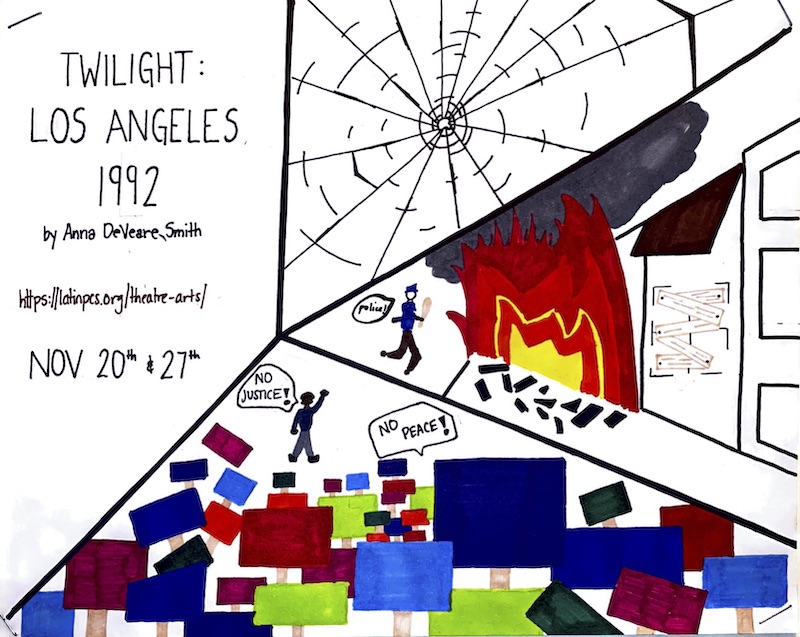 TWILIGHT:
LOS ANGELES
1992
by Anna DeVeare Smith
https://latinpcs.org/theatre-arts/
NOV 20th & 27th
police!
NO
JUSTICE!
NO PEACE!